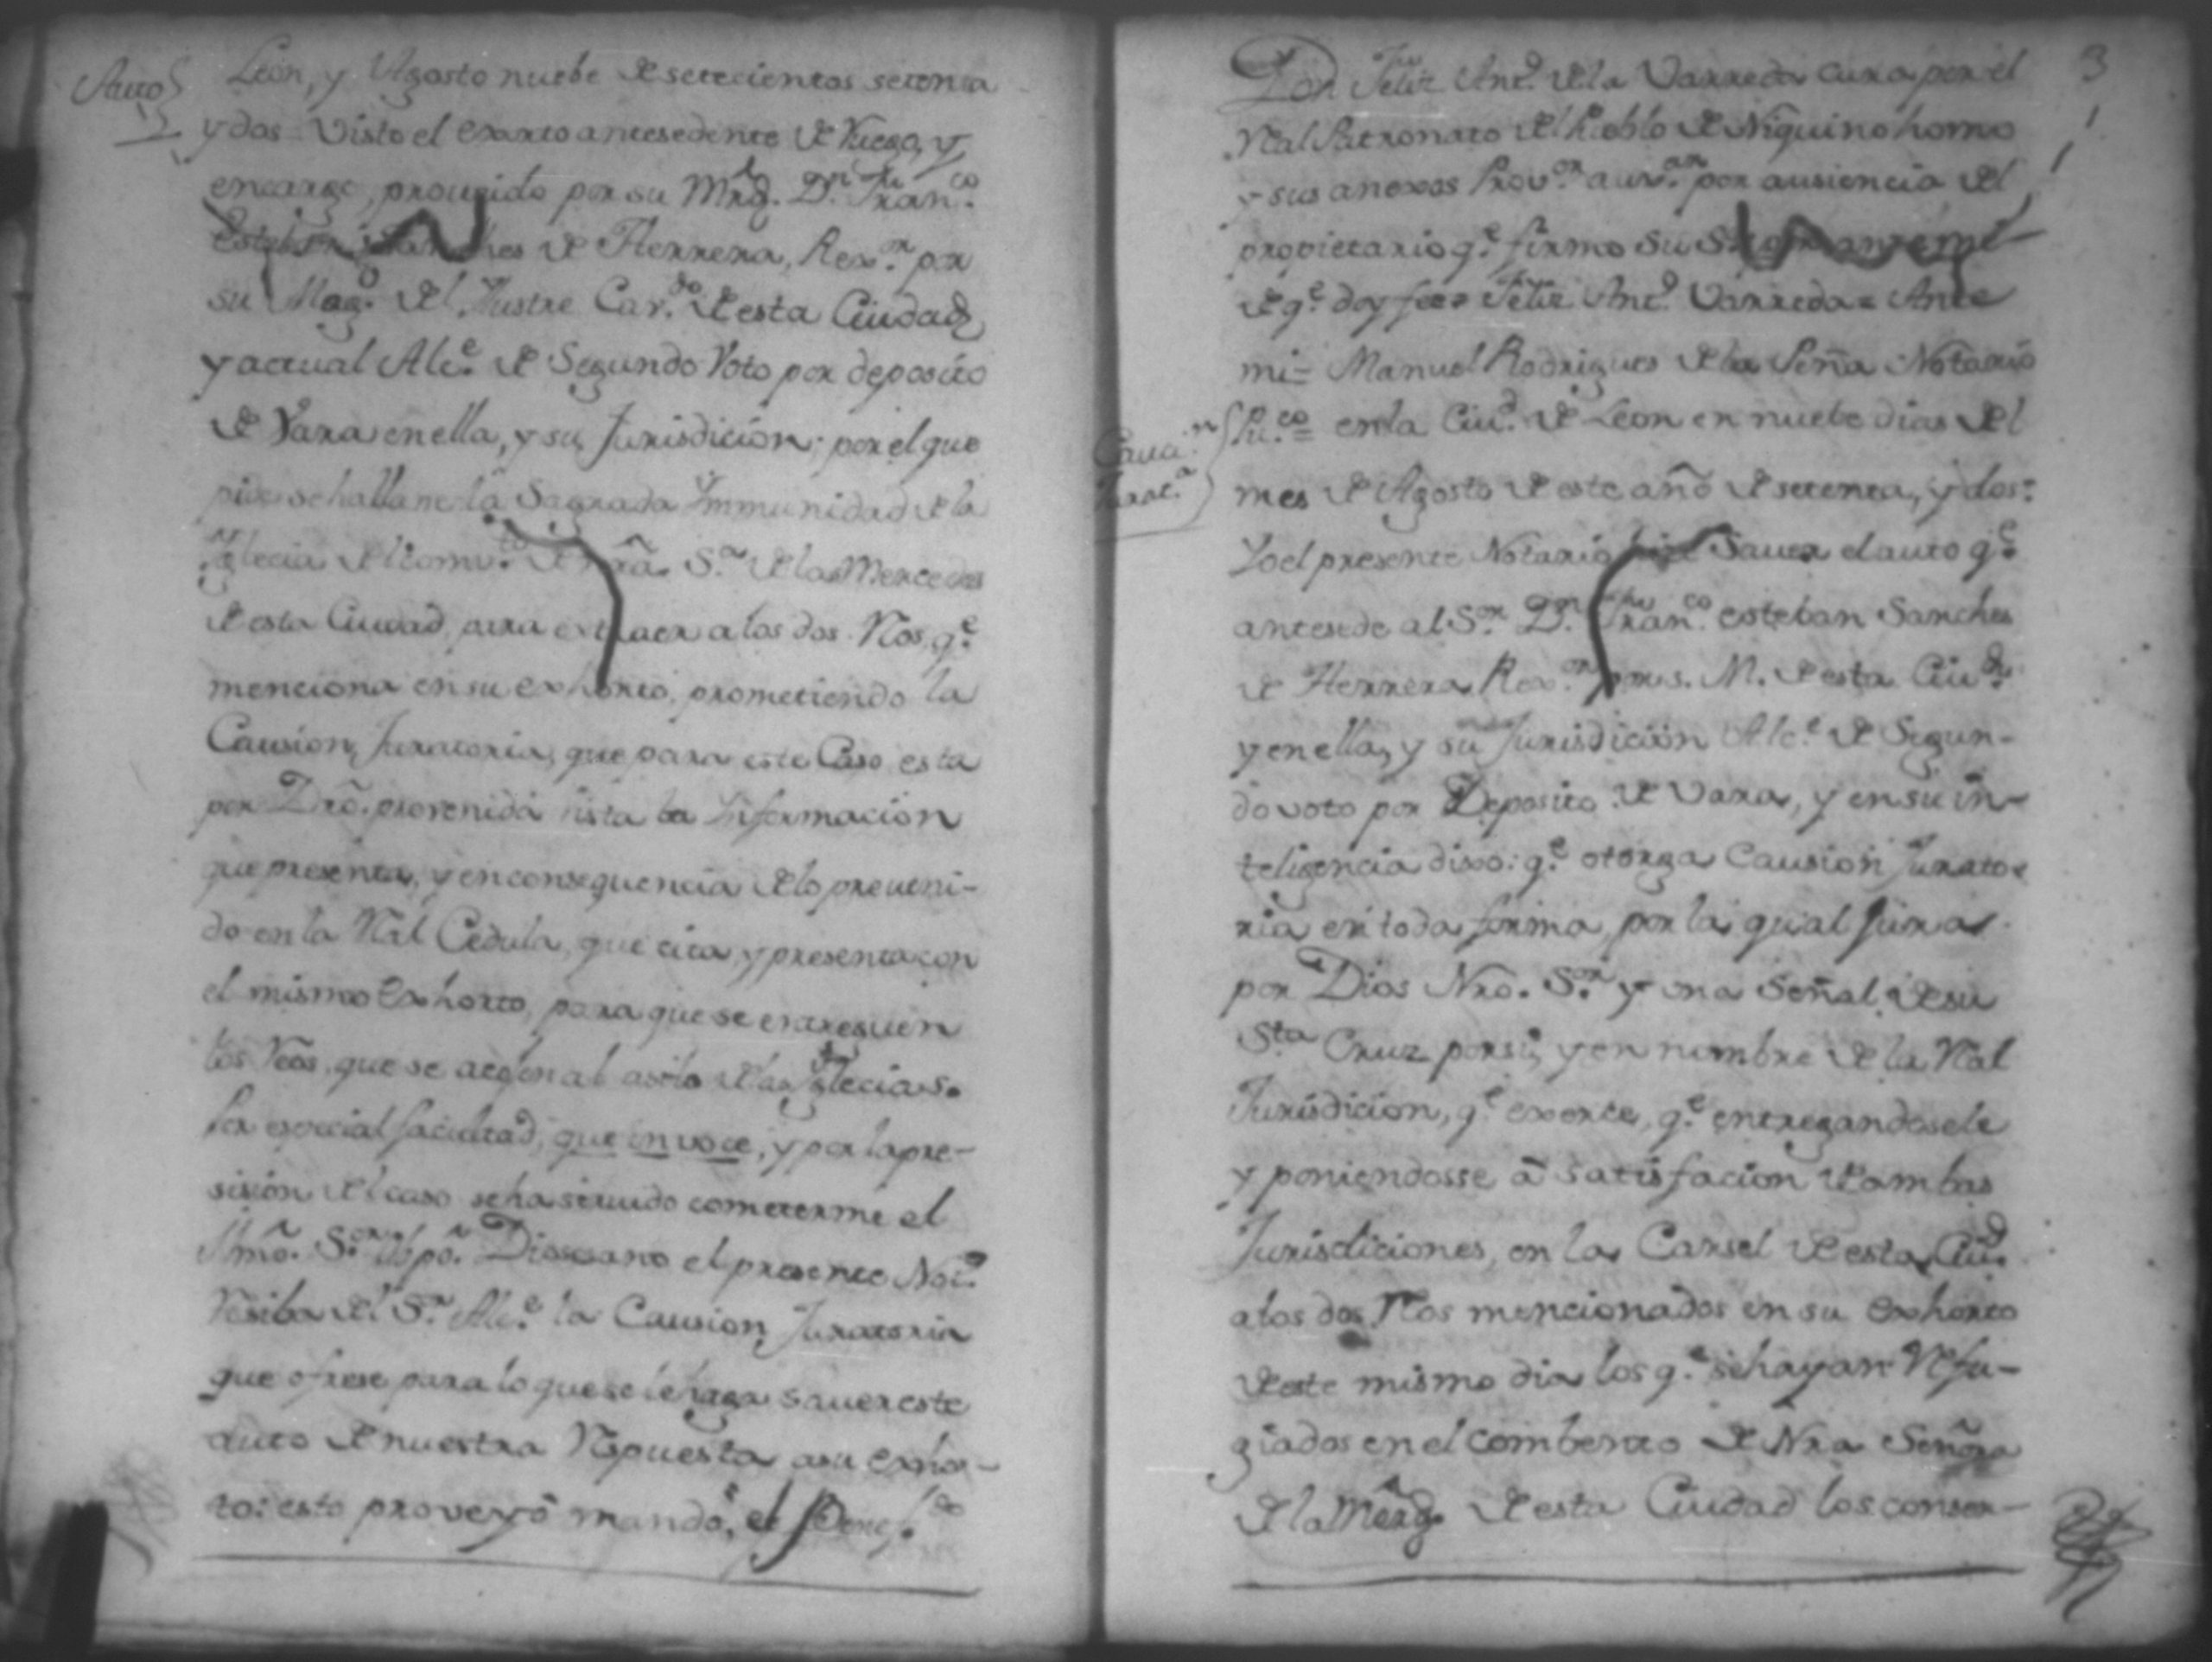 Auto
Leon, y Agosto nuebe de setecientos setenta
y dos = Visto el Exorto antesedente de Ruego, y
encargo, proveido por su Mrd. Dn. Franco.
Esteban Sanches de Herrera, Rexor. por
su Magd. del Ilustre Cavdo. de esta Ciudad
y actual Alce. de Segundo Voto por deposito
de Vara en ella, y su Jurisdicion; por el que
pide se hallane la Sagrada Ymmunidad de la
Yglecia del Comvto. de nrã. Sra. de las Mercedes
de esta Ciudad, para extraer a los dos Rõs, qe.
menciona en su exhorto, prometiendo la
Causion Juratoria, que para este Caso esta
por Drõ. prevenida vista la Informacion
que presenta, y en consequencia de lo preveni-
do en la Rãl Cedula, que cita, y presenta con
el mismo Exhorto, para que se entreguen
los Reõs, que se acojen al asilo de las Yglecias.
Por especial facultad, que in voce, y por la pre-
sision del caso se ha servido cometerme el
Ilmõ. Sor. Obpõ. Diosesano el presente Noto.
Resiba del Sr. Alce. la Causion Juratoria
que ofrese para lo que se le haga saver este
auto de nuestra Repuesta a su Exhor-
to: esto proveyô mandô, el Benefdo.
3
Don Felix Anto. de la Varreda Cura por el
Rãl Patronato del Pueblo de Niquinohomo
y sus anexos Provor. auxar. por ausiencia del
propietario qe. firmo su
de qe. doy fee = Felix Anto. Varreda = Ante
mi = Manuel Rodrigues de la Peña Notario
Puco. = en la Ciud. de Leon en nuebe dias del
Cauci.n
Jurat.a
mes de Agosto de este año de setenta, y dos.
Yo el presente Notario hize Saver el auto qe.
antesede al Sor. Dn. Franco. esteban Sanches
de Herrera Rexor. por s. M. de esta Ciud.
y en ella, y su Jurisdicion Alce. de Segun-
do voto por Deposito de Vara, y en su in-
teligencia dixo: qe. otorga Causion Jurato-
ria en toda forma, por la qual jura
por Dios Nro. Sor. y una Señal de su
Sta Cruz por si, y en nombre de la Rãl
Jurisdicion, qe. exerce, qe. entregandosele
y poniendosse â satisfacion de ambas
Jurisdiciones, en la Carsel de esta Ciud.
a los dos Rõs mencionados en su Exhorto
de este mismo dia los qe. se hayan Refu-
giados en el combento de Nra Señora
de la Merd. de esta Ciudad los conser-